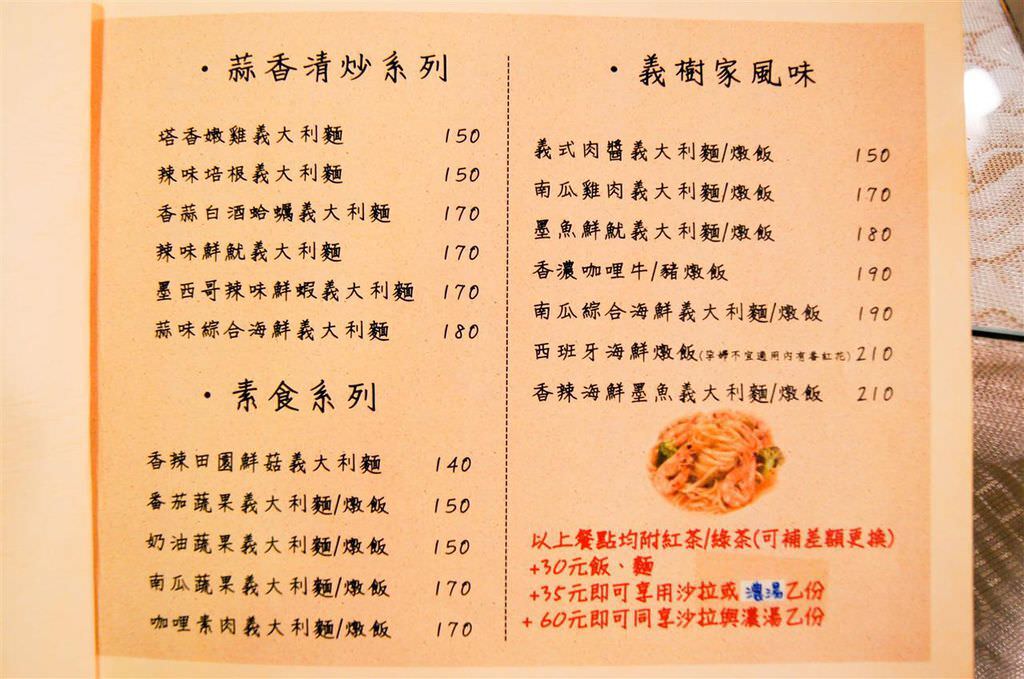 ·蒜香清炒系列
塔香嫩雞義大利麵 150
辣味培根義大利麵 150
香蒜白酒蛤蠣義大利麵 170
辣味鮮魷義大利麵 170
墨西哥辣味鮮蝦義大利麵 170
蒜味綜合海鮮義大利麵 180
·素食系列
香辣田園鮮菇義大利麵 140
番茄蔬果義大利麵/燉飯 150
奶油蔬果義大利麵/燉飯 150
南瓜蔬果義大利麵/燉飯 170
咖哩素肉義大利麵/燉飯 170
·義樹家風味
義式肉醬義大利麵/燉飯 150
南瓜雞肉義大利麵/燉飯 170
墨魚鮮魷義大利麵/燉飯 180
香濃咖哩牛/豬燉飯 190
南瓜綜合海鮮義大利麵/燉飯 190
西班牙海鮮燉飯(孕婦不宜適用內有番紅花) 210
香辣海鮮墨魚義大利麵/燉飯 210
以上餐點均附紅茶/綠茶(可補差額更換)
+30元飯、麵
+35元即可享用沙拉或濃湯乙份
+60元即可同享沙拉與濃湯乙份